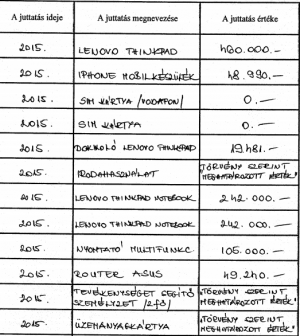 A juttatás ideje A juttatás megnevezése A juttatás értéke
2015. LENOVO THINKPAD 460.000.—
2015. IPHONE MOBILKÉSZÜLÉK 48.990.—
2015. SIM KÁRTYA /VODAFON/ 0.—
2015. SIM KÁRTYA 0.—
2015. DOKKOLÓ LENOVO THINKPAD 19481.—
2015. IRODAHASZNÁLAT "TÖRVÉNY SZERINT
MEGHATÁROZOTT MÉRTÉK"
2015. LENOVO THINKPAD NOTEBOOK 242.000.—
2015. LENOVO THINKPAD NOTEBOOK 242.000.—
2015. NYOMTATÓ MULTIFUNKC. 105.000.—
2015. ROUTER ASUS 49.240.—
2015. TEVÉKENYSÉGET SEGÍTŐ "TÖRVÉNY SZERINT
SZEMÉLYZET /2 fő/ MEGHATÁROZOTT MÉRTÉK"
2015. ÜZEMANYAGKÁRTYA "TÖRVÉNY SZERINT
MEGHATÁROZOTT MÉRTÉK"